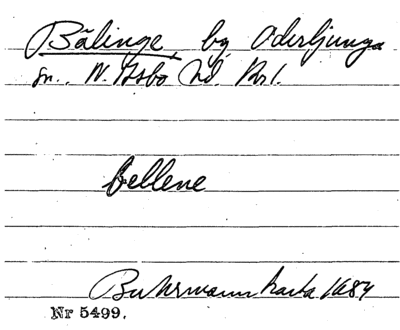 Bälinge, by Oderljunga
sn., N. Åsbo hd. Krl.
bellene
Buhrmann karta 1684
Nr 5499.